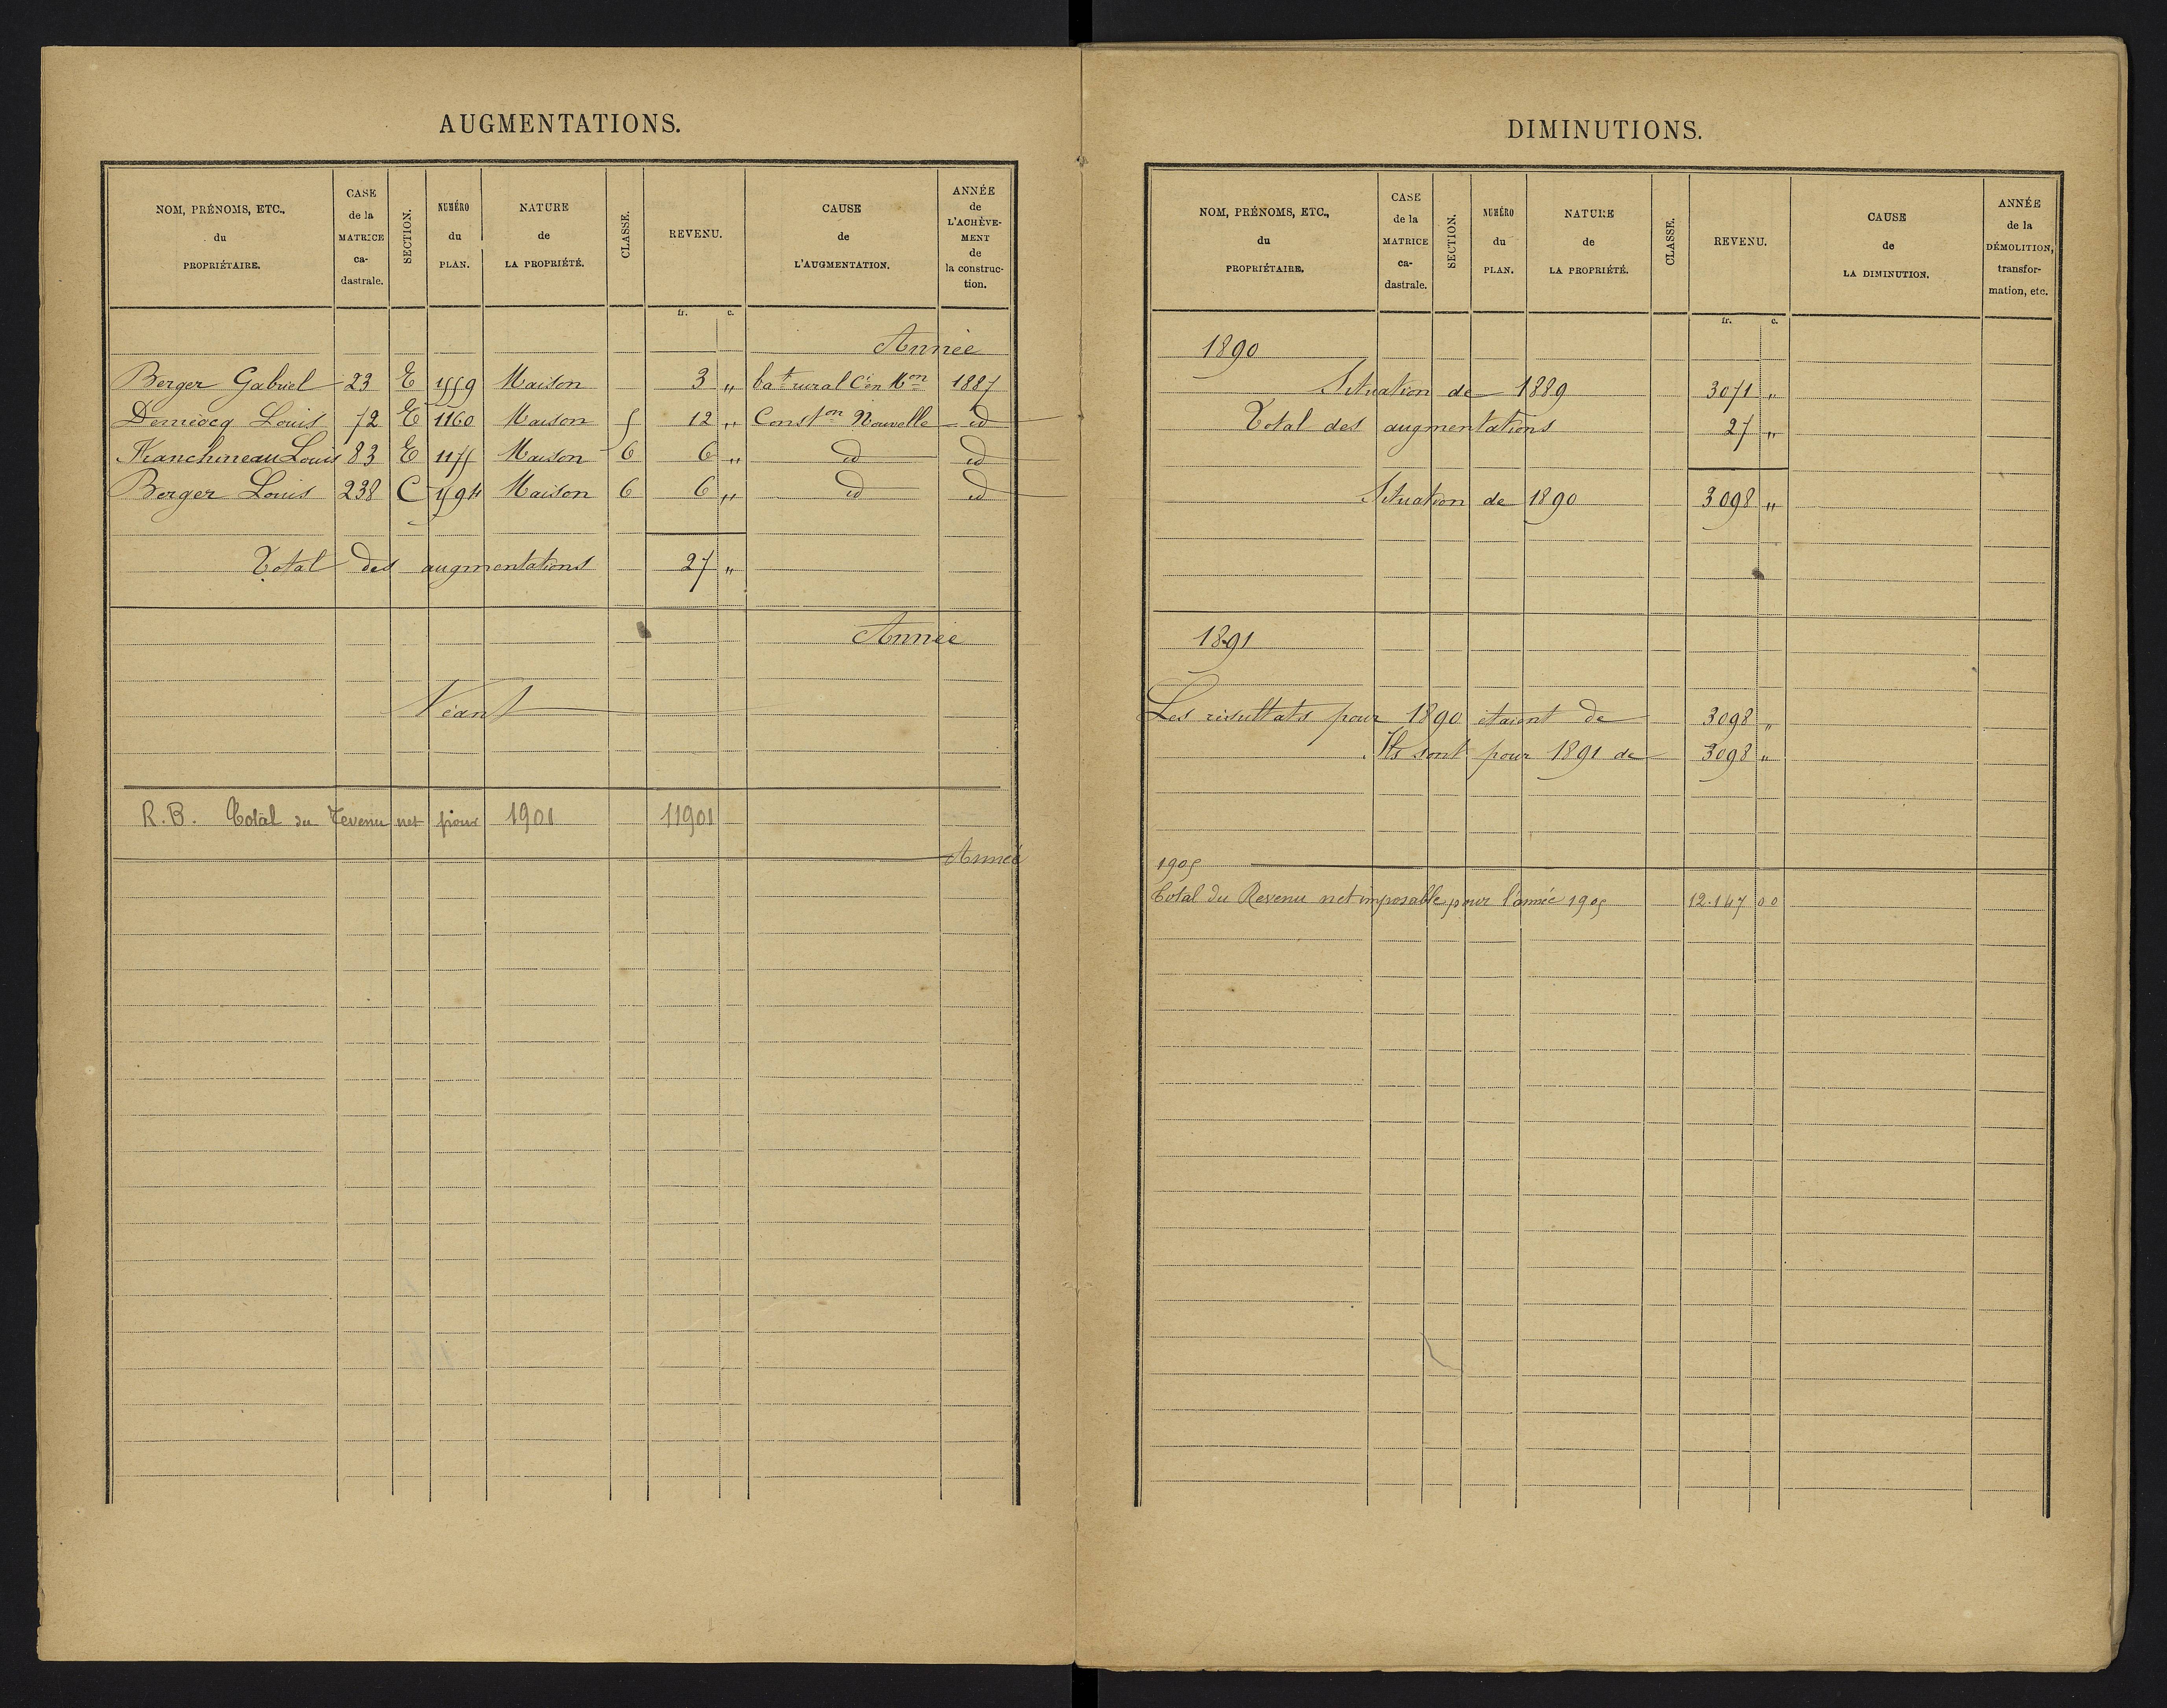 AUGMENTATIONS.
NOM, PRÉNOMS, ETC., du PROPRIÉTAIRE.
CASE de la MATRICE ca- dastrale.
SECTION.
NUMÉRO du PLAN.
NATURE de LA PROPRIÉTÉ.
CLASSE.
REVENU.
CAUSE de L'AUGMENTATION.
ANNÉE de L'ACHÈVE- MENT de la construc- tion.
fr. c.
Année
Berger Gabriel 23 E 1559 Maison 3 " bat rural C en Mon 1887
Louis 72 E 1160 Maison 5 12 " Conston Nouvelle id
Louis 83 E 1175 Maison 6 6 " id id
Berger Louis 238 C 1594 Maison 6 6 " id id
Total des augmentations 27 "
Année
Néant
R.B. Total du revenu net pour 1901 11901
Année
DIMINUTIONS.
NOM, PRÉNOMS, ETC., du PROPRIÉTAIRE.
CASE de la MATRICE ca- dastrale.
SECTION.
NUMÉRO du PLAN.
NATURE de LA PROPRIÉTÉ.
CLASSE.
REVENU.
CAUSE de LA DIMINUTION.
ANNÉE de la DÉMOLITION, transfor- mation, etc.
fr. c.
1890
Situation de 1889 3071 "
Total des augmentations 27 "
Situation de 1890 3098 "
1891
Les résultats pour 1890 étaient de 3098 "
Ils sont pour 1891 de 3098 "
1905
Total du Revenu net imposable pour l'année 1905 12.147 00